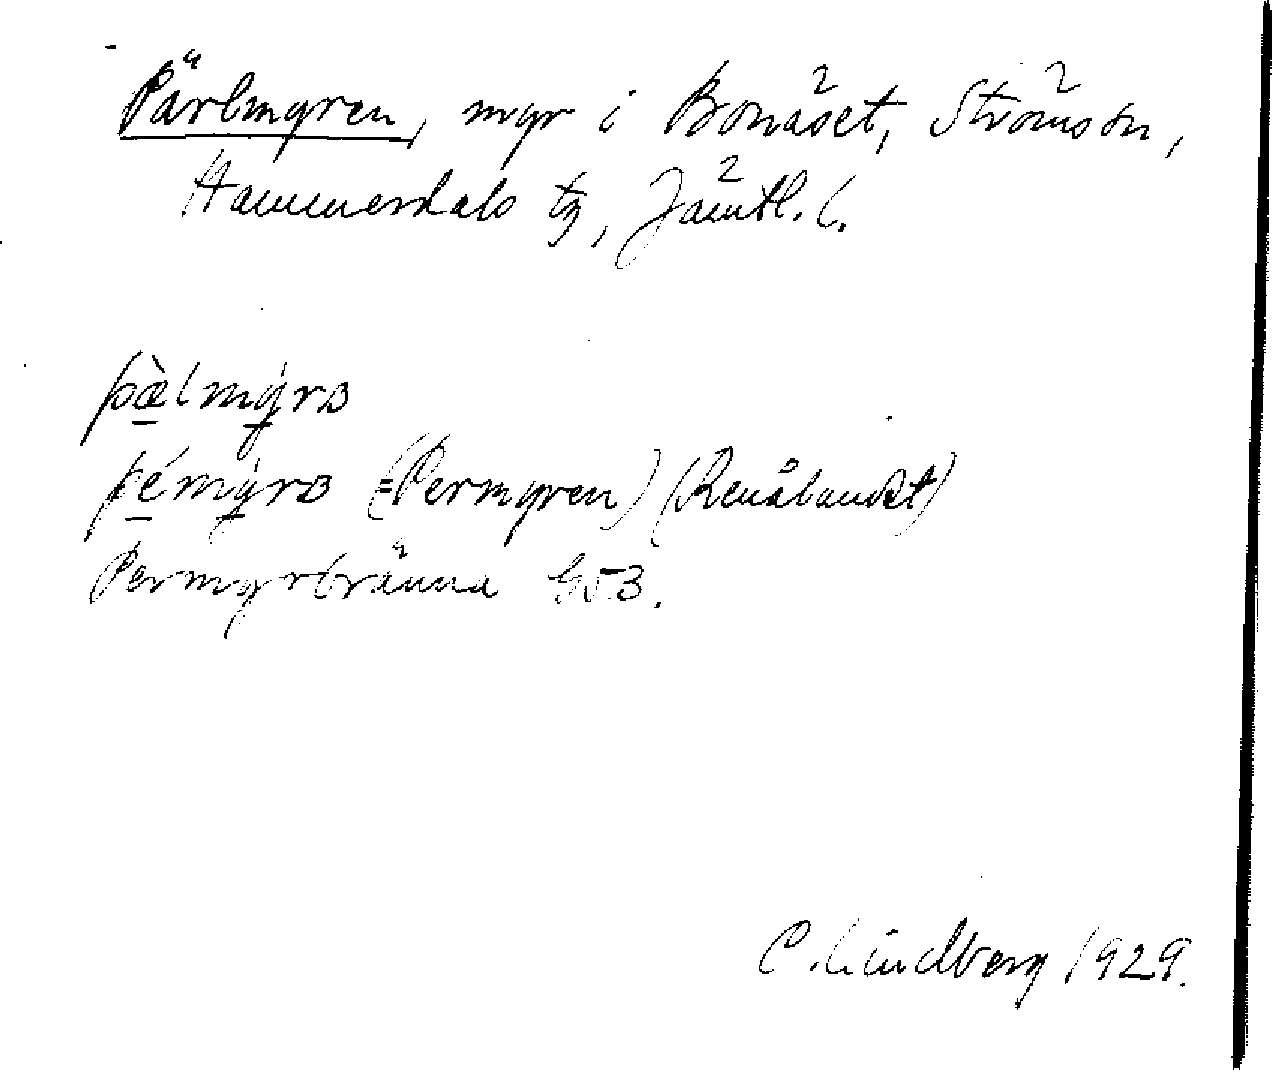 Pärlmyren, myr i Bonäset, Ströms sn,
Hammerdals tg, Jämtl. l.
pæ̀lmýrɞ
pémýrɞ (=Permyren) (Renålandet)
Permyrbränna GvB.
C. Lindberg 1929.